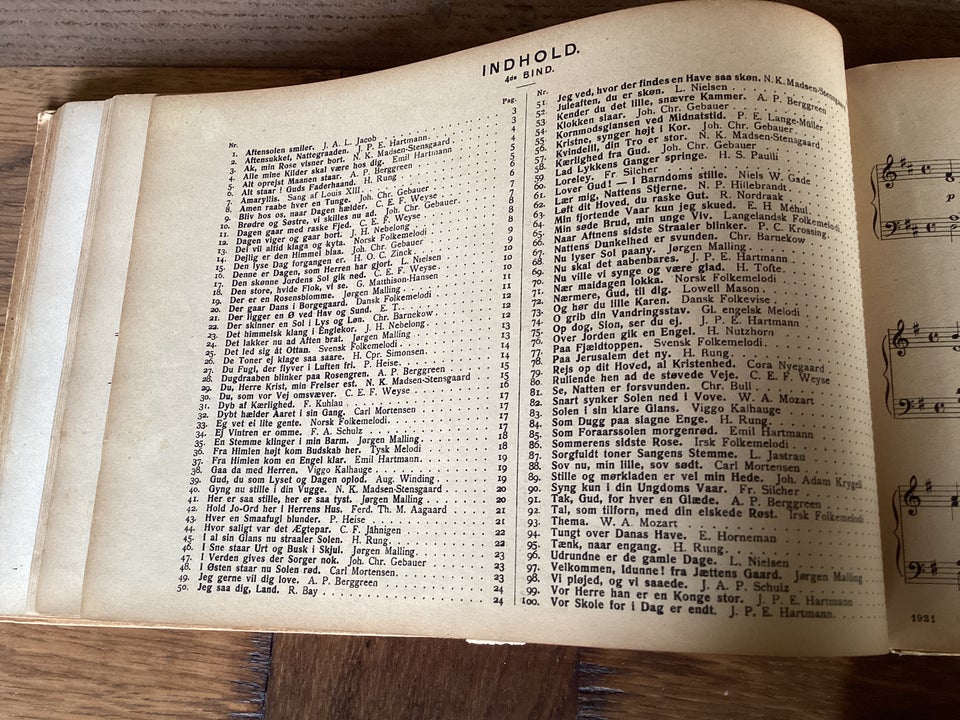 INDHOLD.
4de BIND.
Nr. Pag.
1. Aftensolen smiler. J. A. L. Jacob 3
2. Aftensukket, Nattegraaden. J. P. E. Hartmann. 3
3. Ak, min Rose visner bort. N. K. Madsen-Stensgaard 4
4. Alle mine Kilder skal være hos dig. Emil Hartmann 4
5. Alt oprejst Maanen staar. A. P. Berggreen 5
6. Alt staar i Guds Faderhaand. H. Rung 5
7. Amaryllis. Sang af Louis XIII. 6
8. Amen raabe hver en Tunge. Joh. Chr. Gebauer 7
9. Bliv hos os, naar Dagen hælder. C. E. F. Weyse 7
10. Brødre og Søstre, vi skilles nu ad. Joh. Chr. Gebauer. 8
11. Dagen gaar med raske Fjed. C. E. F. Weyse 8
12. Dagen viger og gaar bort. J. H. Nebelong 8
13. Dei vil altid klaga og kyta. Norsk Folkemelodi 9
14. Dejlig er den Himmel blaa. Joh. Chr. Gebauer 9
15. Den lyse Dag forgangen er. H. O. C. Zinck 10
16. Denne er Dagen, som Herren har gjort. L. Nielsen 10
17. Den skønne Jordens Sol gik ned. C. E. F. Weyse 10
18. Den store, hvide Flok, vi se. G. Matthison-Hansen 11
19. Der er en Rosensblomme. Jørgen Malling 11
20. Der gaar Dans i Borgegaard. Dansk Folkemelodi 12
21. Der ligger en Ø ved Hav og Sund. E. T. 12
22. Der skinner en Sol i Lys og Løn. Chr. Barnekow 12
23. Det himmelsk klang i Englekor. J. H. Nebelong 13
24. Det lakker nu ad Aften brat. Jørgen Malling 13
25. Det led sig åt Ottan. Svensk Folkemelodi 14
26. De Toner ej klage saa saare. H. Cpr. Simonsen 14
27. Du Fugl, der flyver i Luften fri. P. Heise 15
28. Dugdraaben blinker paa Rosengren. A. P. Berggreen 15
29. Du, Herre Krist, min Frelser est. N. K. Madsen-Stensgaard 15
30. Du, som vor Vej omsvæver. C. E. F. Weyse 16
31. Dyb af Kærlighed. F. Kuhlau 17
32. Dybt hælder Aaret i sin Gang. Carl Mortensen 17
33. Eg vet ei lite grente. Norsk Folkemelodi. 17
34. Ej Vintren er omme. F. A. Schulz 17
35. En Stemme klinger i min Barm. Jørgen Malling 18
36. Fra Himlen højt kom Budskab her. Tysk Melodi 18
37. Fra Himlen kom en Engel klar. Emil Hartmann. 19
38. Gaa da med Herren. Viggo Kalhauge 19
39. Gud, du som Lyset og Dagen oplod. Aug. Winding 19
40. Gyng nu stille i din Vugge. N. K. Madsen-Stensgaard 20
41. Her er saa stille, her er saa tyst. Jørgen Malling 20
42. Hold Jo-Ord her i Herrens Hus. Ferd. Th. M. Aagaard 21
43. Hver en Smaafugl blunder. P. Heise 21
44. Hvor saligt var det Ægtepar. C. F. Jähnigen 22
45. I al sin Glans nu straaler Solen. H. Rung. 22
46. I Sne staar Urt og Busk i Skjul. Jørgen Malling 22
47. I Verden gives der Sorger nok. Joh. Chr. Gebauer 23
48. I Østen staar nu Solen rød. Carl Mortensen. 23
49. Jeg gerne vil dig love. A. P. Berggreen 24
50. Jeg saa dig, Land. R. Bay 24
Nr.
51. Jeg ved, hvor der findes en Have saa skøn. N. K. Madsen-Stensgaard
52. Juleaften, du er skøn. L. Nielsen
53. Kender du det lille, snævre Kammer. A. P. Berggreen
54. Klokken slaar. Joh. Chr. Gebauer
55. Kornmodsglansen ved Midnatstid. P. E. Lange-Müller
56. Kristne, synger højt i Kor. Joh. Chr. Gebauer
57. Kvindelil, din Tro er stor. N. K. Madsen-Stensgaard
58. Kærlighed fra Gud. Joh. Chr. Gebauer
59. Lad Lykkens Ganger springe. H. S. Paulli
60. Loreley. Fr. Silcher
61. Lover Gud! — I Barndoms stille. Niels W. Gade
62. Lær mig, Nattens Stjerne. N. P. Hillebrandt
63. Løft dit Hoved, du raske Gut. R. Nordraak
64. Min fjortende Vaar kun jeg skued. E. H. Méhul.
65. Min søde Brud, min unge Viv. Langelandsk Folkemelodi
66. Naar Aftnens sidste Straaler blinker. P. C. Krossing.
67. Nattens Dunkelhed er svunden. Chr. Barnekow
68. Nu lyser Sol paany. Jørgen Malling
69. Nu skal det aabenbares. J. P. E. Hartmann
70. Nu ville vi synge og være glad. H. Tofte.
71. Nær maldagen lokka. Norsk Folkemelodi
72. Nærmere, Gud, til dig. Lowell Mason.
73. Og hør du lille Karen. Dansk Folkevise.
74. O grib din Vandringsstav. Gl. engelsk Melodi
75. Op dog, Sion, ser du ej. J. P. E. Hartmann
76. Over Jorden gik en Engel. H. Nutzhorn
77. Paa Fjældtoppen. Svensk Folkemelodi
78. Paa Jerusalem det ny. H. Rung.
79. Rejs op dit Hoved, al Kristenhed. Cora Nyegaard
80. Rullende hen ad de støvede Veje. C. E. F. Weyse
81. Se, Natten er forsvunden. Chr. Bull
82. Snart synker Solen ned i Vove. W. A. Mozart
83. Solen i sin klare Glans. Viggo Kalhauge
84. Som Dugg paa slagne Enge. H. Rung
85. Som Foraarssolen morgenrød. Emil Hartmann
86. Sommerens sidste Rose. Irsk Folkemelodi
87. Sorgfuldt toner Sangens Stemme. L. Jastrau
88. Sov nu, min lille, sov sødt. Carl Mortensen
89. Stille og mørkladen er vel min Hede. Joh. Adam Krygell
90. Syng kun i din Ungdoms Vaar. Fr. Silcher
91. Tak, Gud, for hver en Glæde. A. P. Berggreen
92. Tal, som tilforn, med din elskede Røst. Irsk Folkemelodi
93. Thema. W. A. Mozart
94. Tungt over Danas Have. E. Horneman
95. Tænk, naar engang. H. Rung.
96. Udrundne er de gamle Dage. L. Nielsen
97. Velkommen, Idunne! fra Jættens Gaard. Jørgen Malling
98. Vi pløjed, og vi saaede. J. A. P. Schulz
99. Vor Herre han er en Konge stor. J. P. E. Hartmann
100. Vor Skole for i Dag er endt. J. P. E. Hartmann.
p
1921